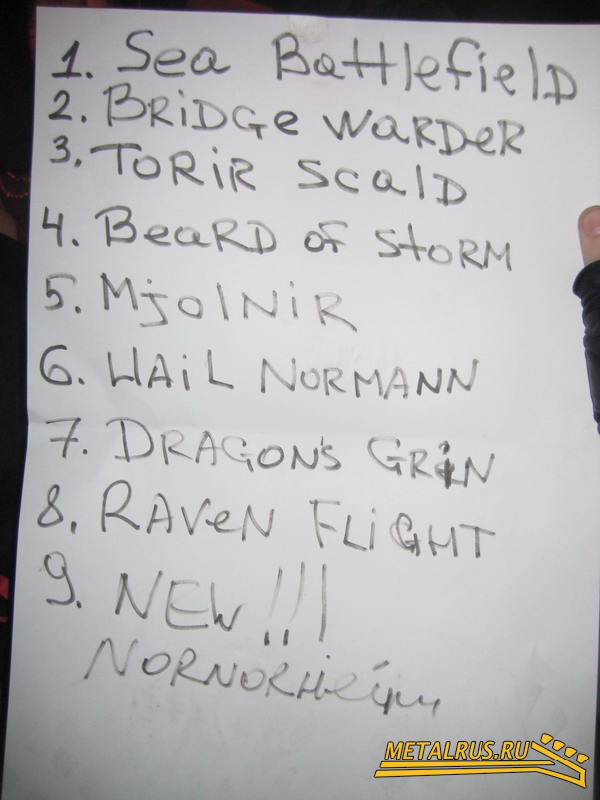 1. Sea Battlefield
2. BRiDGe WARDeR
3. TORiR SCalD
4. BeaRD of StORM
5. MjolNiR
6. HAiL NORMANN
7. DRAGON'S GRiN
8. RAVeN FLiGHT
9. NEW!!!
METALRUS.RU